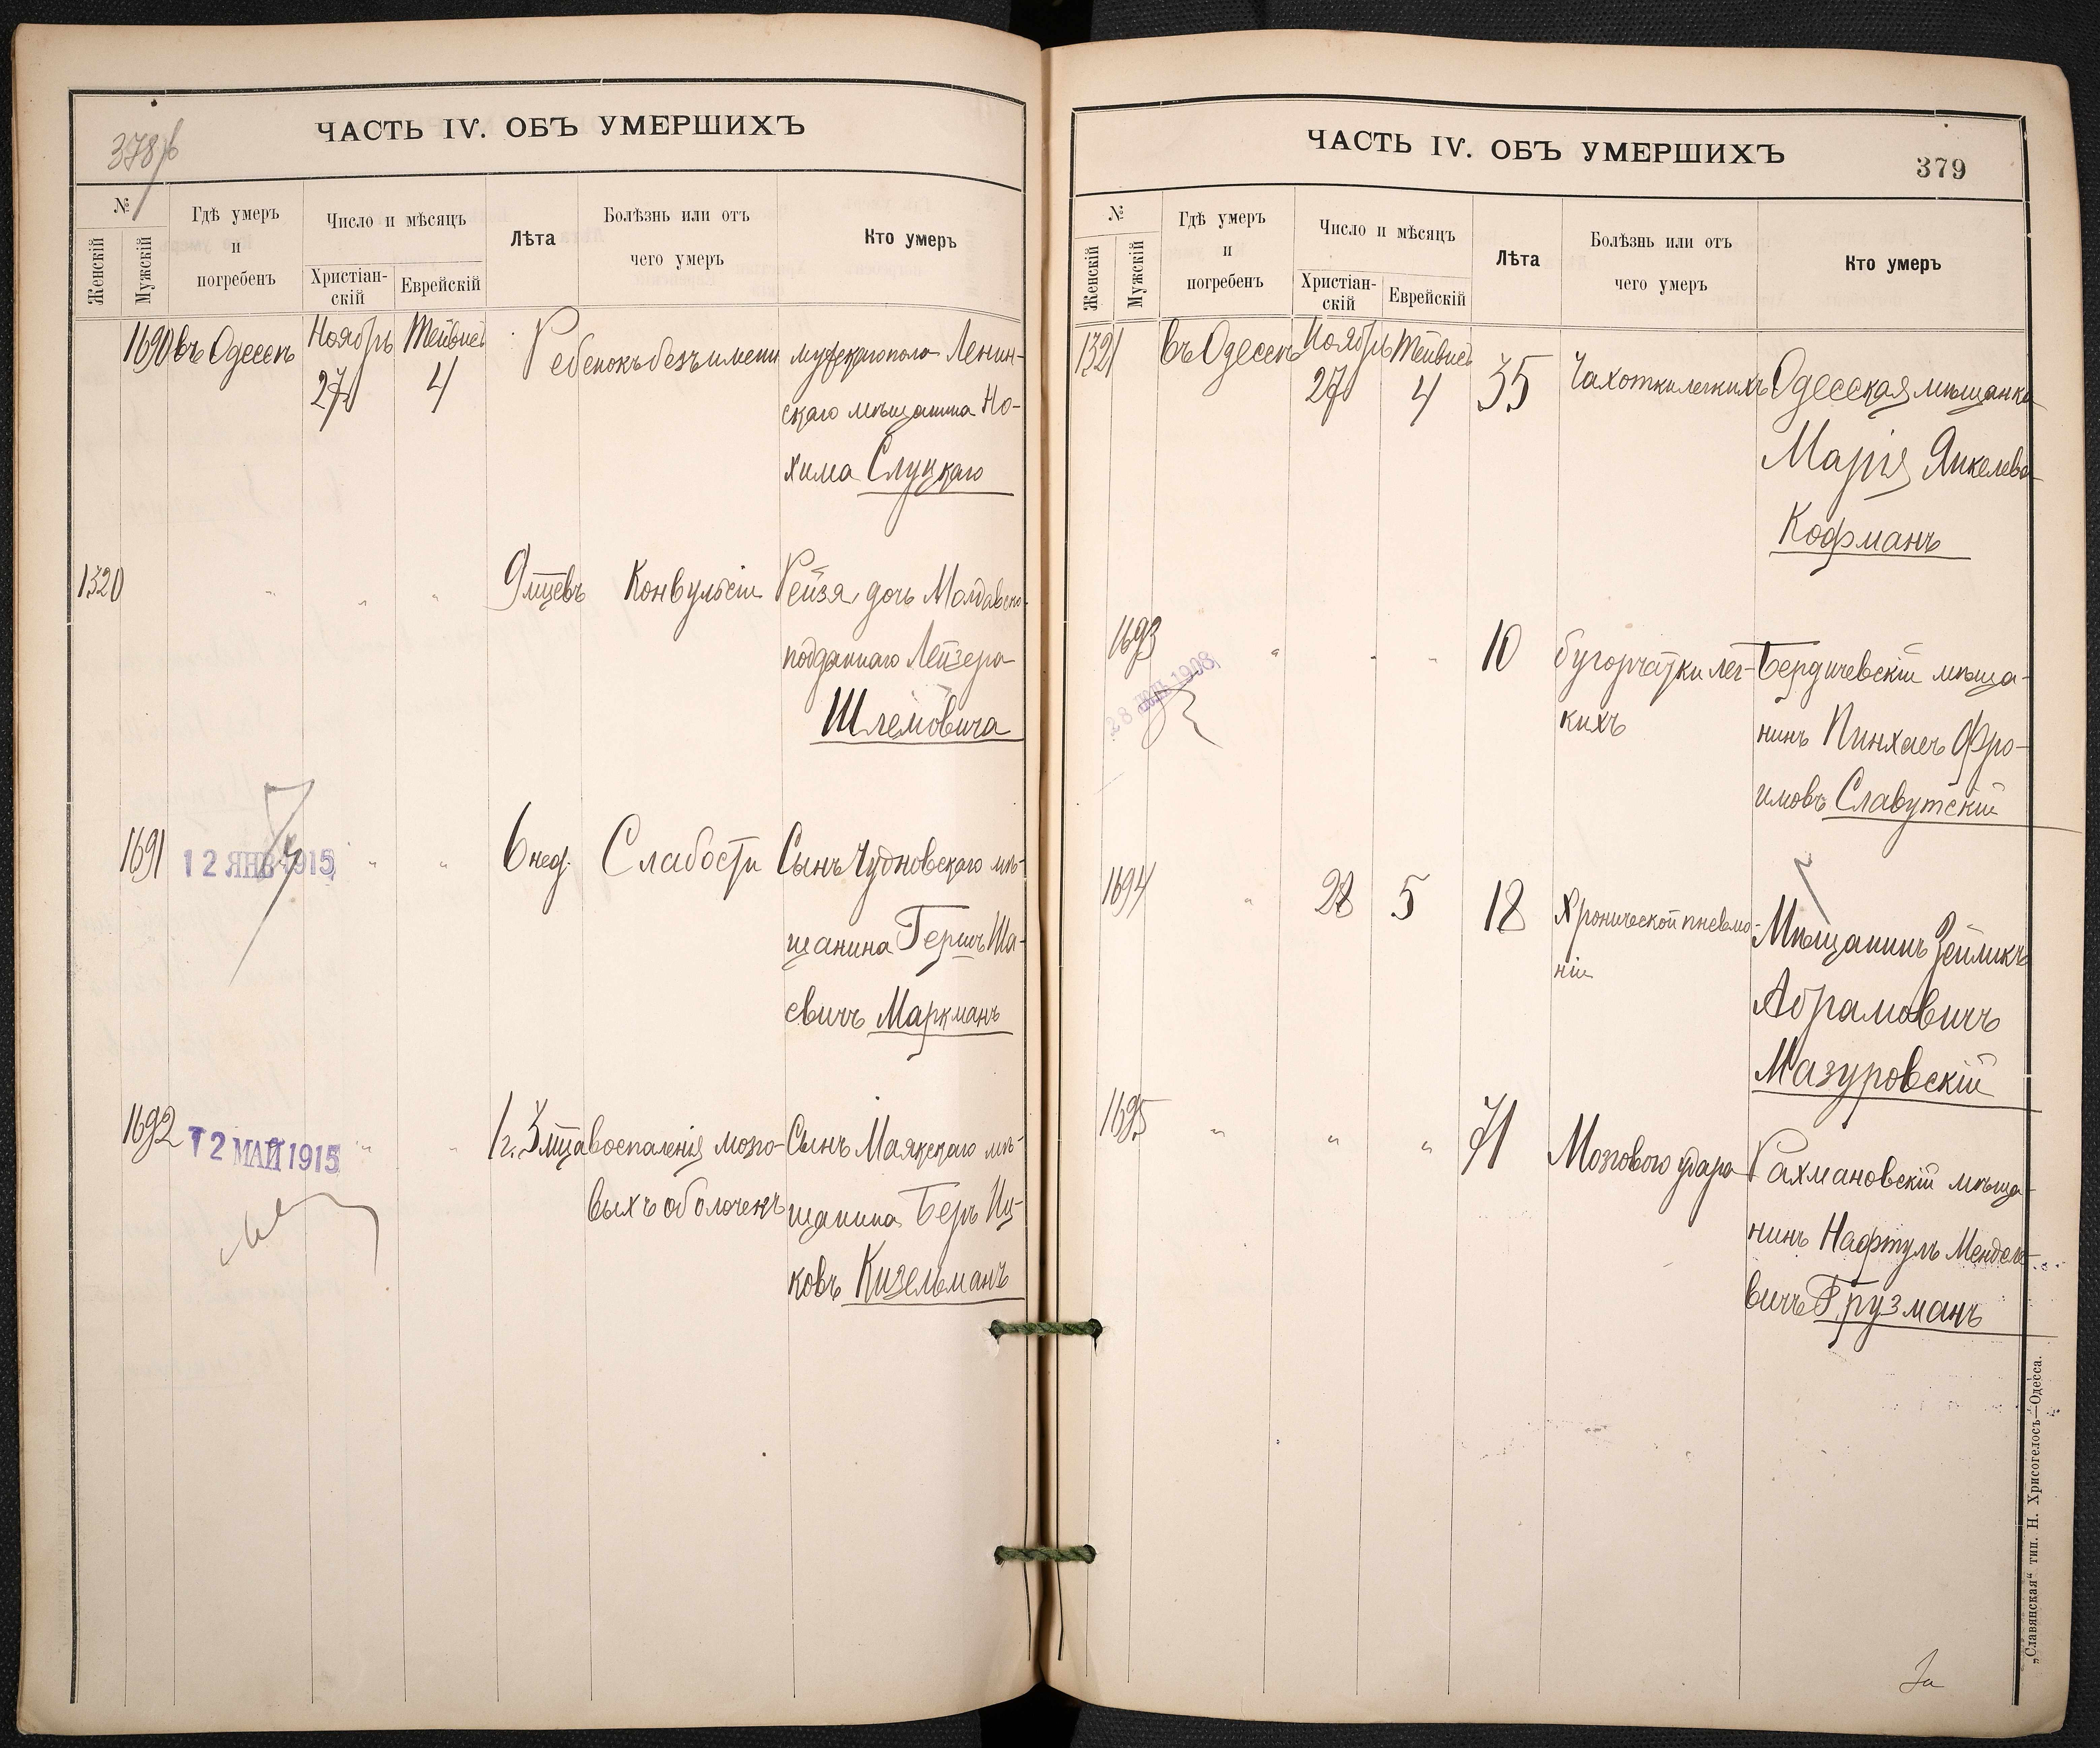 378/б
ЧАСТЬ IV. ОБЪ УМЕРШИХЪ
№
Женскій
Мужскій
Гдѣ умеръ
и
погребенъ
Число и мѣсяцъ
Христіан-
скій
Еврейскій
Лѣта
Болѣзнь или отъ
чего умеръ
Кто умеръ
1690 въ Одессѣ Ноябрь 27 Тейвисъ 4 Ребенокъ безъ имени мужскаго пола Ленин-
скаго мѣщанина Но-
хима Слуцкаго
1320 " " " 9 мцевъ Конвульсіи Рейзя дочь Молдавско-
подданнаго Лейзера
Шлемовича
1691 12 ЯНВ 1915 " " 6 нед. Слабости Сынъ Чудновскаго мѣ-
щанина Гершъ Ша-
евичъ Маркманъ
1692 12 МАЙ 1915 " " 1 г. 3 мца воспаленія мозго-
выхъ оболочекъ
Сынъ Маякскаго мѣ-
щанина Беръ Иц-
ковъ Кизельманъ
ЧАСТЬ IV. ОБЪ УМЕРШИХЪ
379
№
Женскій
Мужскій
Гдѣ умеръ
и
погребенъ
Число и мѣсяцъ
Христіан-
скій
Еврейскій
Лѣта
Болѣзнь или отъ
чего умеръ
Кто умеръ
1321 въ Одессѣ Ноябрь 27 Тейвисъ 4 35 Чахотки легкихъ Одесская мѣщанка
Марія Янкелева
Кофманъ
1693 " " " 10 бугорчатки лег-
кихъ
28 1908
Бердичевскій мѣща-
нинъ Пинхасъ Фро-
имовъ Славутскій
1694 " 28 5 18 Хронической пневмо-
ніи
Мѣщанинъ Зейликъ
Абрамовичъ
Мазуровскій
1695 " " " 71 Мозгового удара Рахмановскій мѣща-
нинъ Нафтулъ Менделе-
вичъ Грузманъ
„Славянская“ тип. Н. Хрисогелосъ—Одесса.